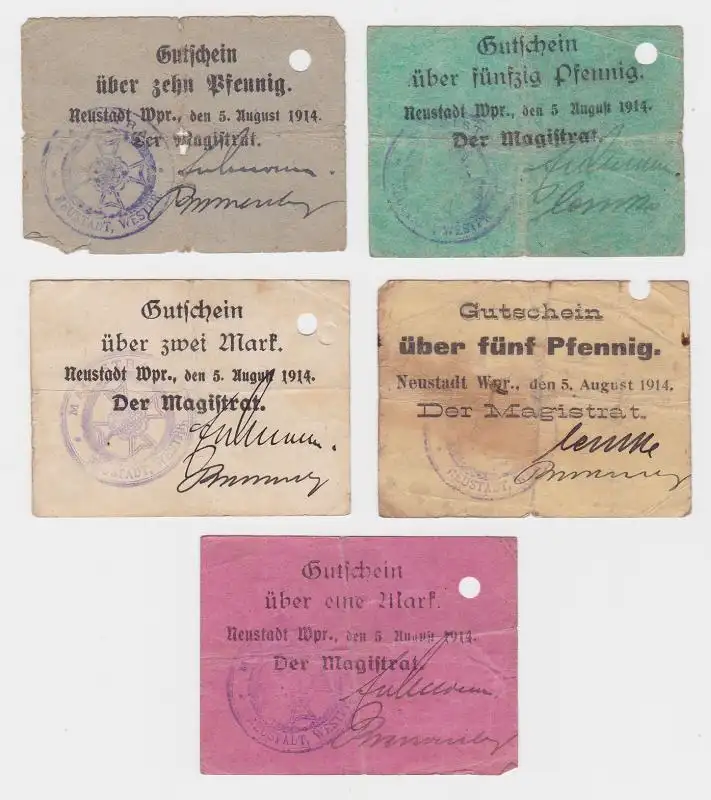 Gutschein
über zehn Pfennig.
Neustadt Wpr., den 5. August 1914.
Der Magistrat.
NEUSTADT, WESTPR.
Gutschein
über fünfzig Pfennig.
Neustadt Wpr., den 5 August 1914.
Der Magistrat.
WESTPR
Gutschein
über zwei Mark.
Neustadt Wpr., den 5. August 1914.
Der Magistrat.
NEUSTADT, WESTPR.
Gutschein
über fünf Pfennig.
Neustadt Wpr., den 5. August 1914.
Der Magistrat.
Lemke
NEUSTADT,
Gutschein
über eine Mark.
Neustadt Wpr., den 5 August 1914.
Der Magistrat.
NEUSTADT, WESTPR